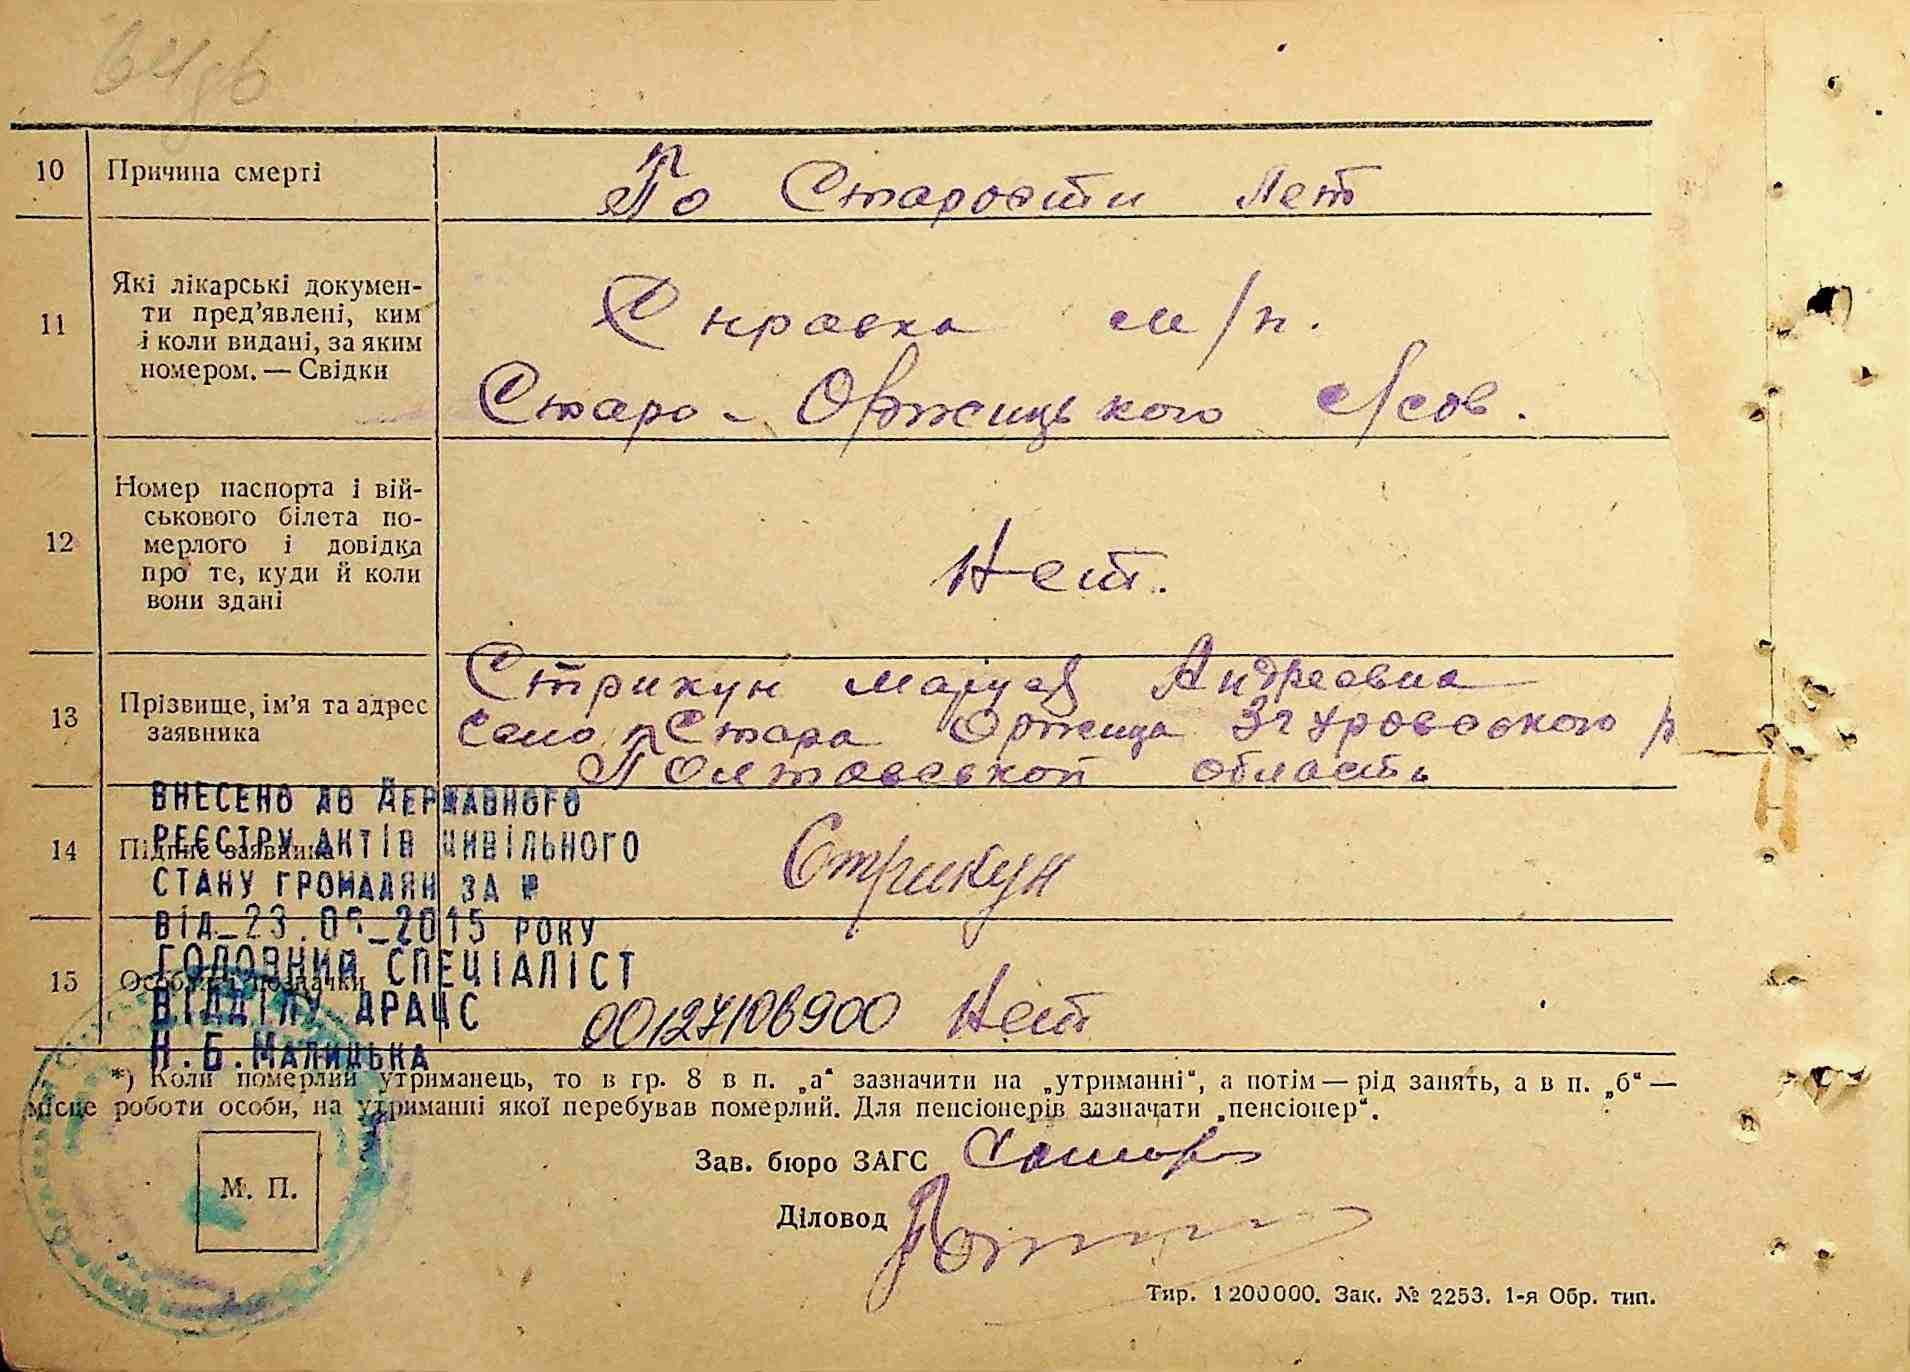 10 Причина смерті По Старости лет
11 Які лікарські докумен-
ти пред’явлені, ким
і коли видані, за яким
номером. — Свідки
Справка м/п.
Старо - Оржицького с/сов.
12 Номер паспорта і вій-
ськового білета по-
мерлого і довідка
про те, куди й коли
вони здані
Нет.
13 Прізвище, ім’я та адрес
заявника
Стрикун Маруся Андреевна
село Стара Оржица Згуровського р
Полтавськоп область
14 Підпис заявника Стрикун
ВНЕСЕНО ДО ДЕРЖАВНОГО
РЕЄСТРУ АКТІВ ЦИВІЛЬНОГО
СТАНУ ГРОМАДЯН ЗА №
ВІД 23. 2015 РОКУ
ГОЛОВНИЙ СПЕЦІАЛІСТ
ВІДДІЛУ ДРАЦС
Н.Б.МАЛИЦЬКА
15 Особливі позначки 00127106900 Нет
*) Коли померлий утриманець, то в гр. 8 в п. „а“ зазначити на „утриманні“, а потім — рід занять, а в п. „б“ —
місце роботи особи, на утриманні якої перебував померлий. Для пенсіонерів зазначати „пенсіонер“.
М. П.
Зав. бюро ЗАГС
Діловод
Тир. 1200000. Зак. № 2253. 1-я Обр. тип.